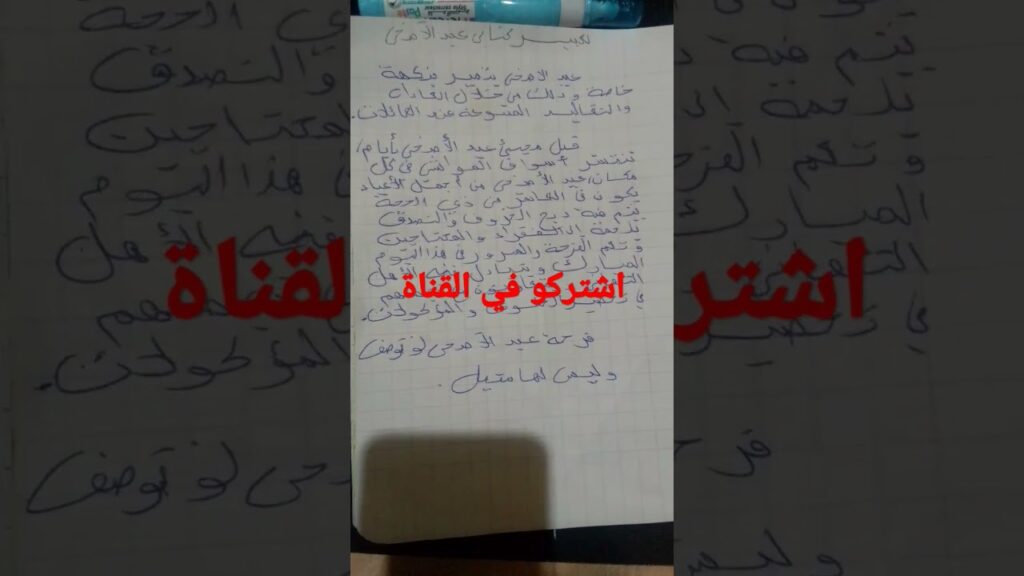 تعبير كتابي عيد الأضحى
عيد الأضحى يتميز بنكهة
خاصة وذلك من خلال العادات
والتقاليد المتنوعة عند العائلات.
قبل مجيئ عيد الأضحى بأيام،
تنتشر أسواق المواشي في كل
مكان، عيد الأضحى من أجمل الأعياد
يكون في العاشر من ذي الحجة
يتم فيه ذبح الخروف والتصدق
بلحمه إلى الفقراء والمحتاجين
و تعم الفرحة والسرور في هذا اليوم
المبارك ويتبادل فيه الأهل
اشتركو في القناة
في تحضير والمؤكولات.
فرحة عيد الأضحى لا توصف
وليس لها متيل.